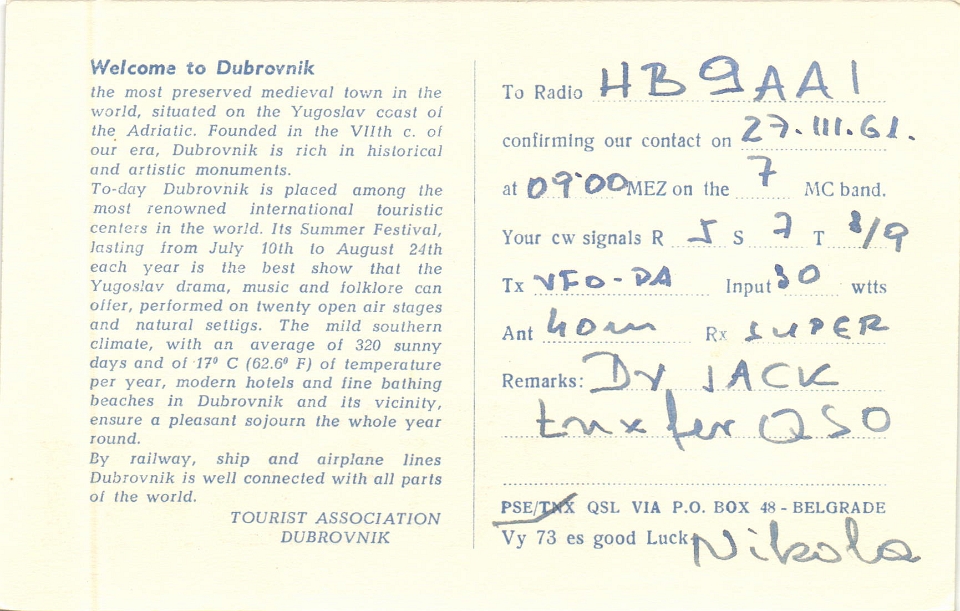 Welcome to Dubrovnik
the most preserved medieval town in the
world, situated on the Yugoslav coast of
the Adriatic. Founded in the VIIth c. of
our era, Dubrovnik is rich in historical
and artistic monuments.
To-day Dubrovnik is placed among the
most renowned international touristic
centers in the world. Its Summer Festival,
lasting from July 10th to August 24th
each year is the best show that the
Yugoslav drama, music and folklore can
offer, performed on twenty open air stages
and natural settigs. The mild southern
climate, with an average of 320 sunny
days and of 17º C (62.6º F) of temperature
per year, modern hotels and fine bathing
beaches in Dubrovnik and its vicinity,
ensure a pleasant sojourn the whole year
round.
By railway, ship and airplane lines
Dubrovnik is well connected with all parts
of the world.
TOURIST ASSOCIATION
DUBROVNIK
To Radio HB9AAI
confirming our contact on 27.III.61.
at 0900 MEZ on the 7 MC band.
Your cw signals R 5 S 7 T 8/9
Tx VFO-PA Input 30 wtts
Ant 40m Rx SUPER
Remarks: Dr JACK
tnx fer QSO
PSE/TNX QSL VIA P.O. BOX 48 - BELGRADE
Vy 73 es good Luck Nikola